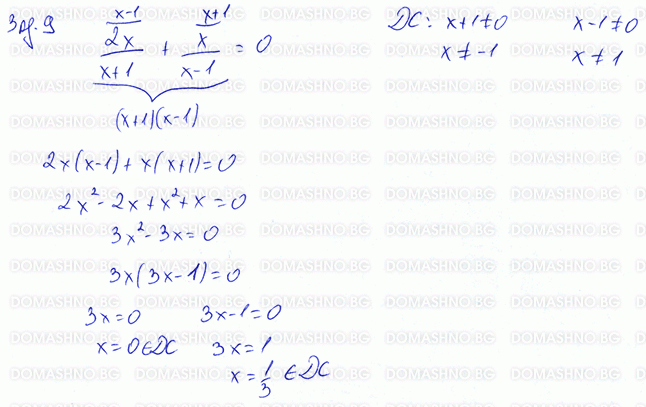 Зад. 9
x-1 x+1
2x/(x+1) + x/(x-1) = 0
(x+1)(x-1)
ДС: x+1≠0 x-1≠0
x≠-1 x≠1
2x(x-1)+x(x+1)=0
2x²-2x+x²+x=0
3x²-3x=0
3x(3x-1)=0
3x=0 3x-1=0
x=0∈ДС 3x=1
x=1/3 ∈ДС
DOMASHNO.BG